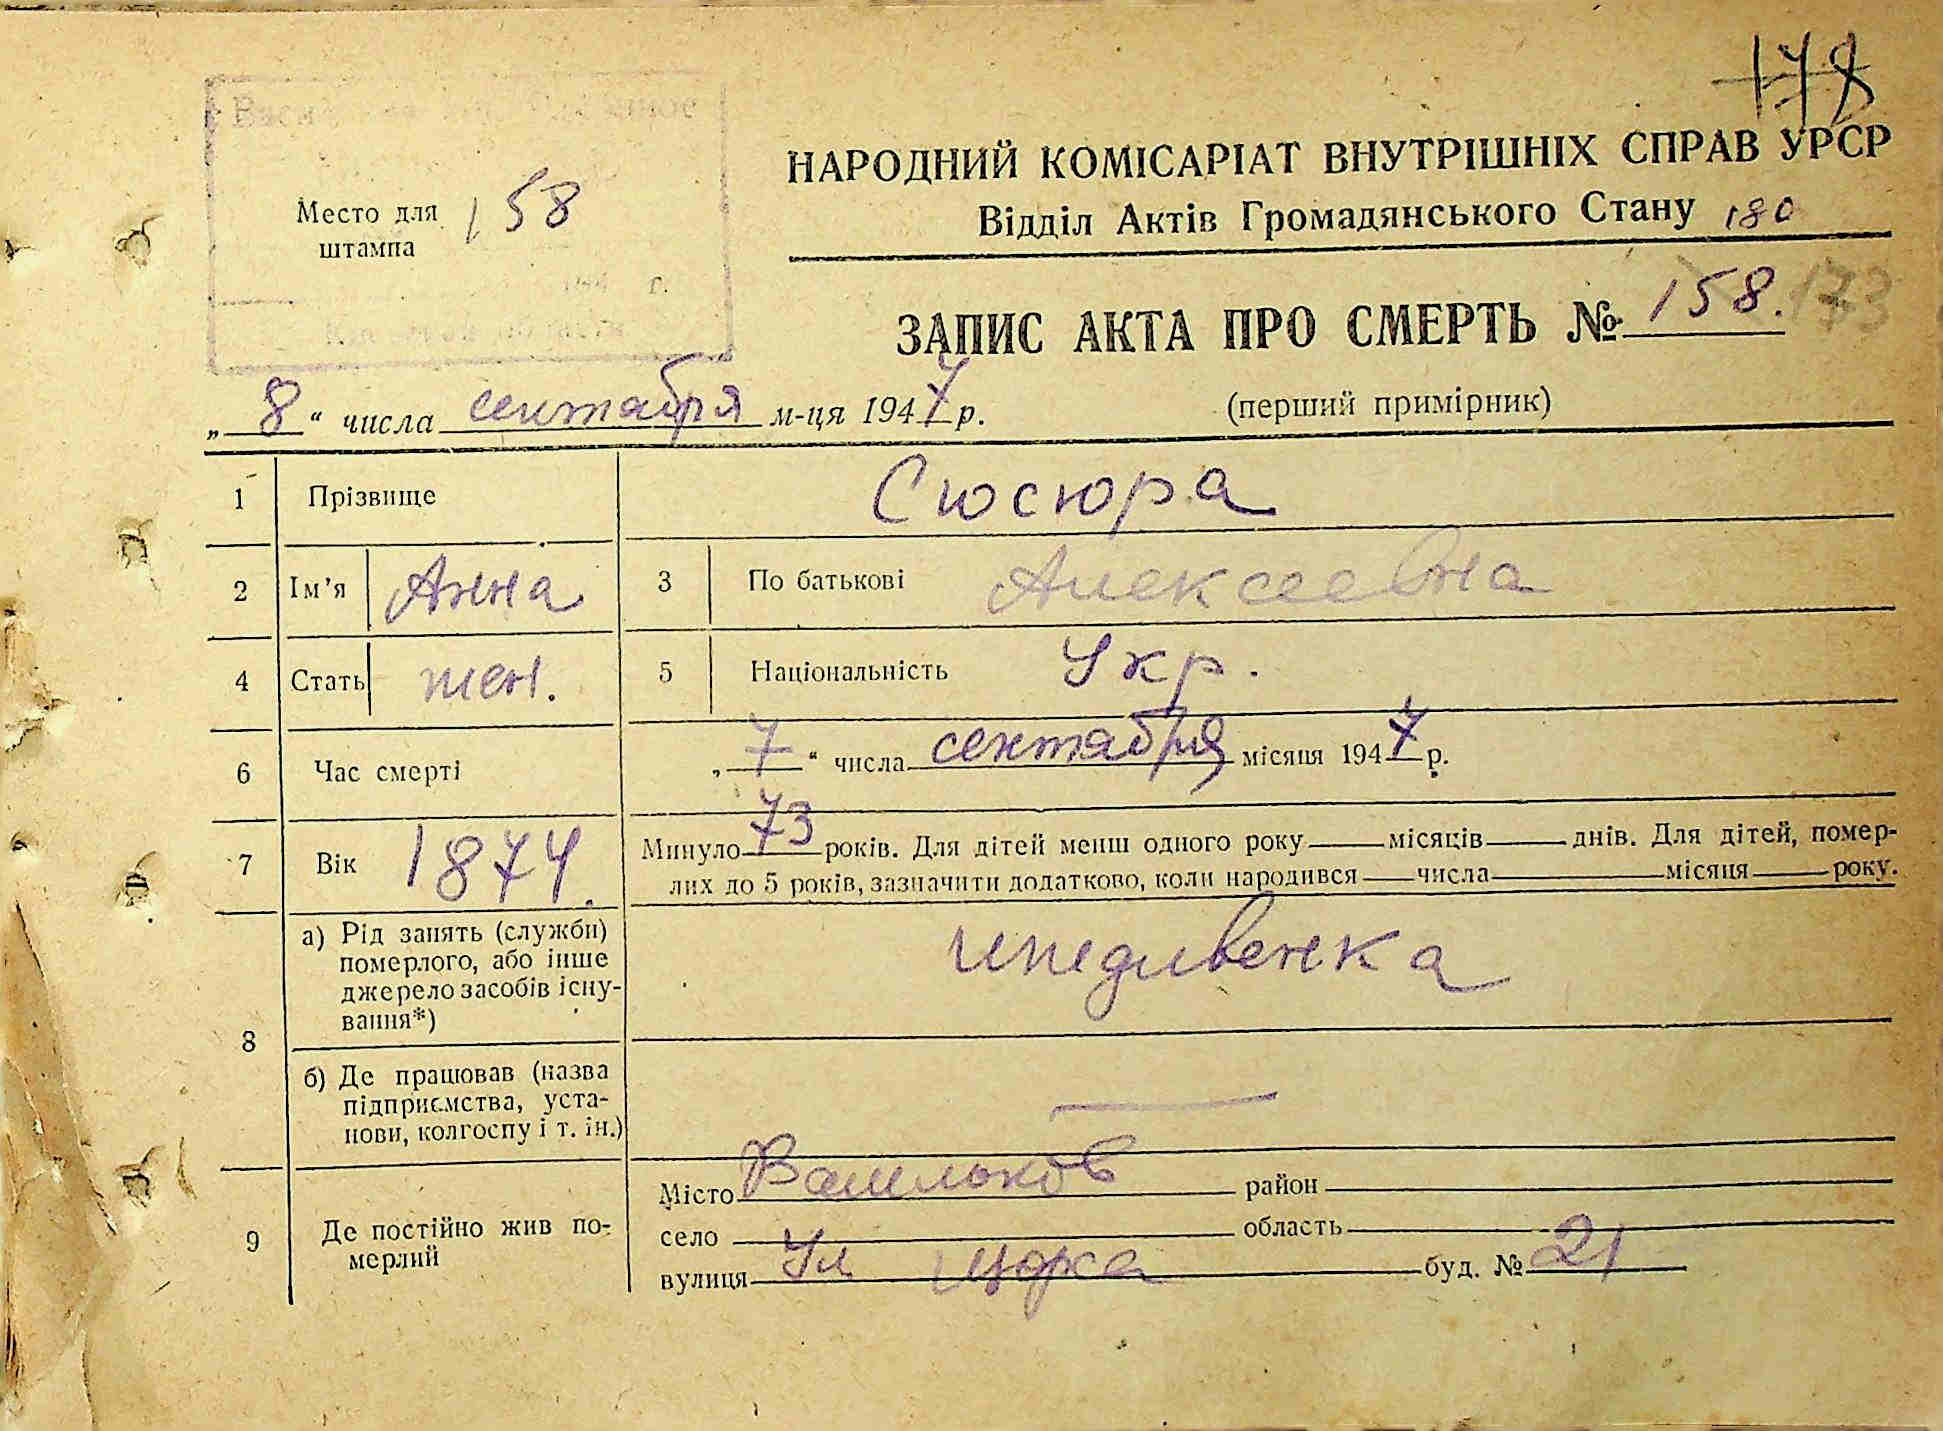 178
НАРОДНИЙ КОМІСАРІАТ ВНУТРІШНІХ СПРАВ УРСР
Відділ Актів Громадянського Стану 180
Место для штампа 158
г.
ЗАПИС АКТА ПРО СМЕРТЬ № 158. 173
„8“ числа сентября м-ця 1947 р. (перший примірник)
1 Прізвище Сюсюра
2 Ім'я Анна 3 По батькові Алексеевна
4 Стать жен. 5 Національність Укр.
6 Час смерті „7“ числа сентября місяця 1947 р.
7 Вік 1874. Минуло 73 років. Для дітей менш одного року місяців днів. Для дітей, помер-
лих до 5 років, зазначити додатково, коли народився числа місяця року.
8 а) Рід занять (служби)
померлого, або інше
джерело засобів існу-
вання*)
иждивенка
б) Де працював (назва
підприємства, уста-
нови, колгоспу і т. ін.)
9 Де постійно жив по-
мерлий
Місто Васильков район
село область
вулиця Ул буд. № 21